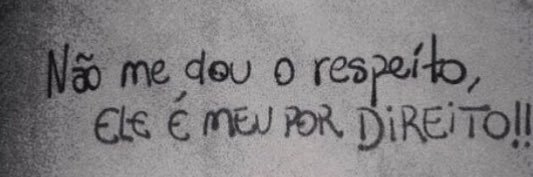 Não me dou o respeito,
ELE É MEU POR DIREITO!!